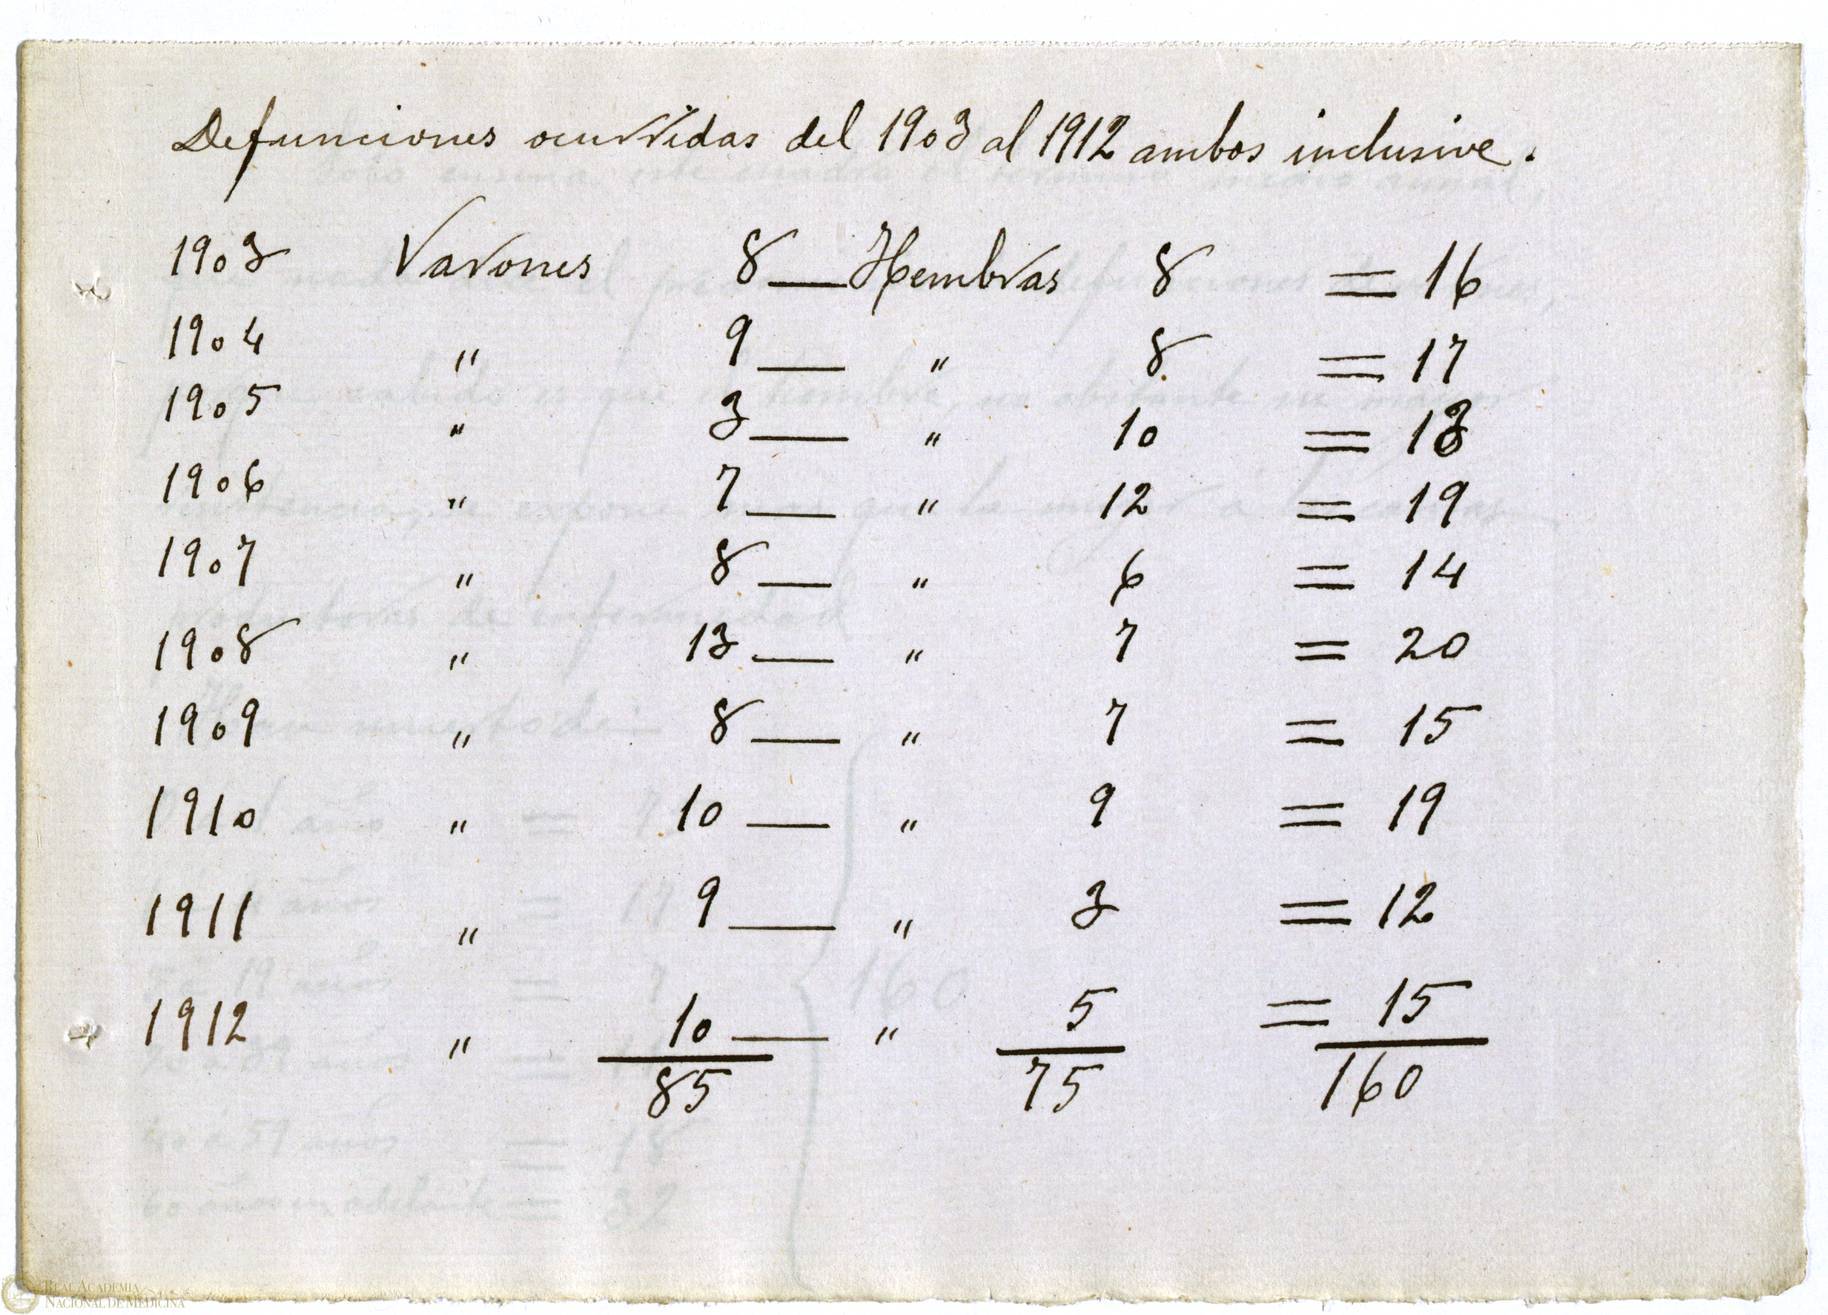 Defunciones ocurridas del 1903 al 1912 ambos inclusive.
1903 Varones 8 — Hembras 8 = 16
1904 " 9 — " 8 = 17
1905 " 3 — " 10 = 13
1906 " 7 — " 12 = 19
1907 " 8 — " 6 = 14
1908 " 13 — " 7 = 20
1909 " 8 — " 7 = 15
1910 " 10 — " 9 = 19
1911 " 9 — " 3 = 12
1912 " 10 — " 5 = 15
85 75 160
REAL ACADEMIA
NACIONAL DE MEDICINA